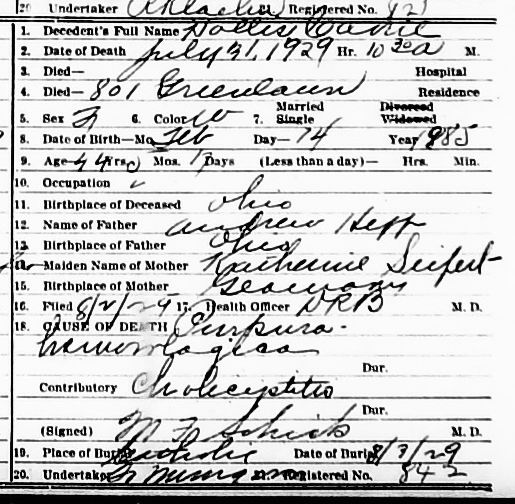 20 Undertaker Registered No. 821
1. Decedent's Full Name Dollis Currie
2. Date of Death July 31, 1929 Hr. 10 30 a M.
3. Died— Hospital
4. Died— 801 Greenlawn Residence
5. Sex F 6. Color W 7. Married Single Divorced Widowed
8. Date of Birth—Mo. Feb Day— 14 Year 1885
9. Age 44 Yrs. Mos. 17 Days (Less than a day)— Hrs. Min.
10. Occupation
11. Birthplace of Deceased Ohio
12. Name of Father Andrew Hepp
13. Birthplace of Father Ohio
14. Maiden Name of Mother Katherine Seifert
15. Birthplace of Mother Germany
16. Filed 8/2/29 17. Health Officer DRB M. D.
18. CAUSE OF DEATH Purpura-
hemorrhagica
Dur.
Contributory Cholicystitis
Dur.
(Signed) M F Schick M. D.
19. Place of Burial Catholic Date of Burial 8/3/29
20. Undertaker Registered No. 842